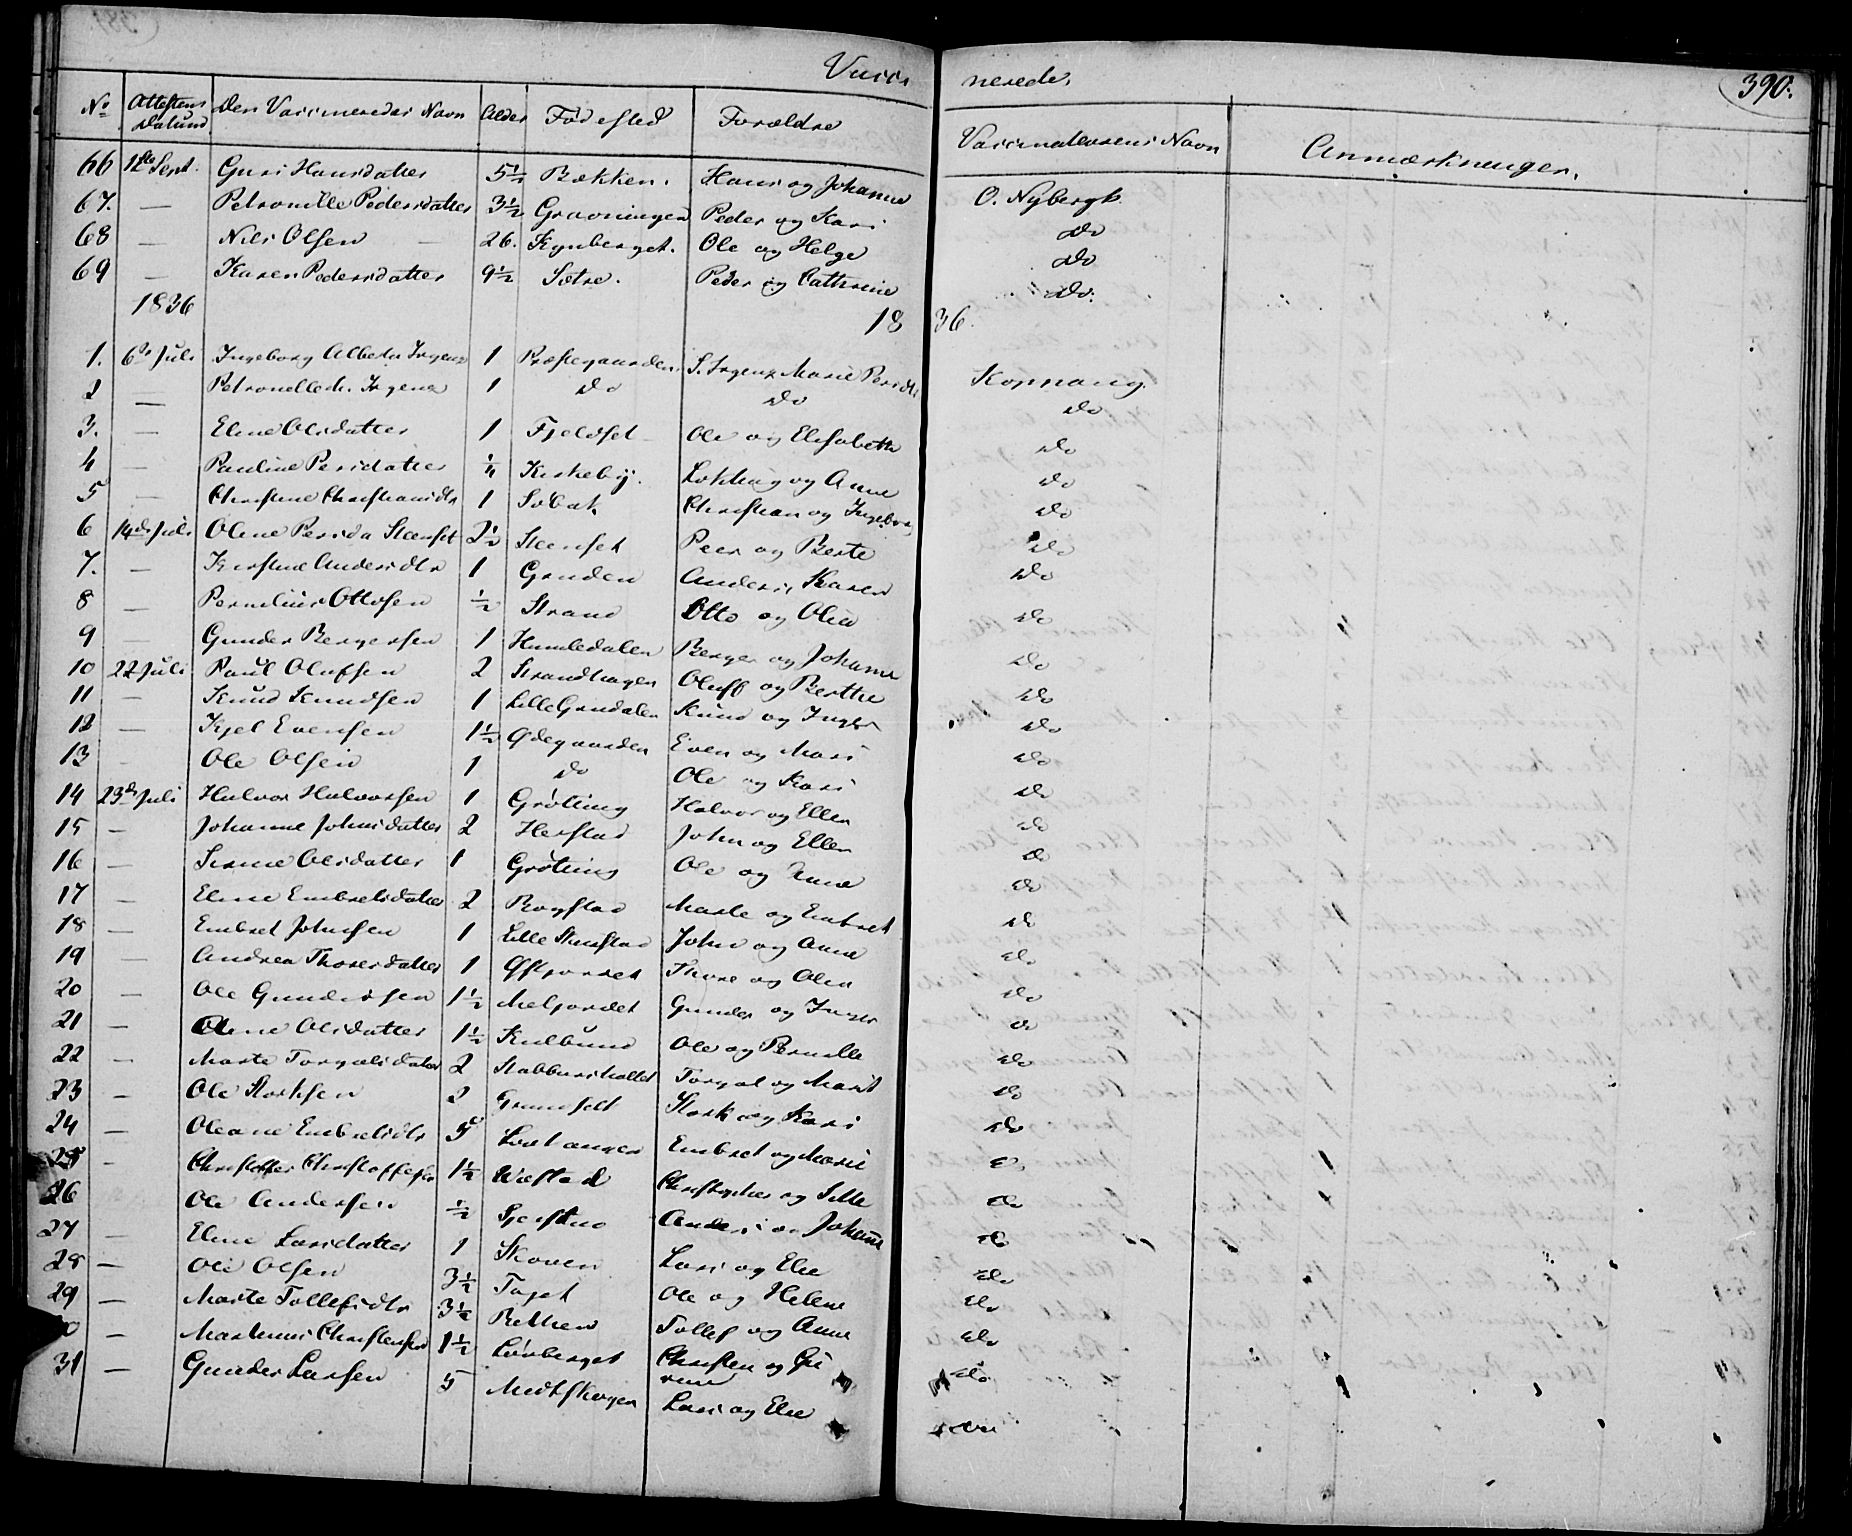 Vacci nerede. 390.
No Attestens Datum Den Vaccineredes Navn Alder Fødested Forældre Vaccinateurens Navn Anmærkninger.
66 12te Sept. Guri Hansdatter 5½ Bækken. Hans og Johanne O. Nybergh
67. — Petronille Pedersdatter 3½ Grønningen Peder og Kari Do
68 — Nils Olsen 26. Kynberget. Ole og Helge Do
69 — Karen Pedersdatter 9½ Sætre. Peder og Cathrine Do.
1836 18 36.
1. 6te Juli Ingeborg Alberta Irgens 1 Præstegaarden S. Irgens, Marie Koppang.
2 — Petronelle Irgens 1 Do Do Do
3. — Eline Olsdatter 1 Fjeldset Ole og Elisabeth Do
4 — Pauline Persdatter ¼ Kirkeby. og Anne Do
5 — Christine Christiansdtr 1 Søbak Christian og Ingeborg Do
6 14de Juli Oline Persda Steenset 2½ Steenset Peer og Berte Do
7. — Kirstine Andersdtr 1 Grinden Anders, Karen Do
8 — Pernelius Ottosen ½ Strand Otto og Olea Do
9 — Gunder Bergersen 1 Humledalen Berger og Johanne Do
10 22 Juli Paul Olufsen 2 Strandhagen Oluff og Berthe Do
11 — Knud Knudsen 1 Lille Grindalen Knud og Inger Do
12 — Kjel Evensen 1½ Ødegaarden Even og Mari Do
13 Ole Olsen 1 Do Ole og Kari Do
14 23de Juli Halvor Halvorsen 1 Grøtting Halvor og Ellen Do
15 — Johanne Johnsdatter 2 Herstad John og Ellen Do
16 — Olsdatter 1 Grøtting Ole og Anne Do
17 — Eline Embretsdatter 2 Rogstad Marte og Embret Do
18 — Embret Johnsen 1 Lille Steenstad John og Anne Do
19 — Andrea Thoresdatter 1 Østjordet Thore og Olea Do
20 — Ole Gundersen 1½ Meljordet Gunder og Inger Do
21 — Oline Olsdatter 1½ Kulbund Ole og Pernille Do
22 — Marte Torgalsdatter 2 Stabbursholtet Torgal og Marit Do
23 — Ole Storksen 2 Grundset Stork og Kari Do
24 — Oleane Embretsdtr 5 Embret og Marie Do
25 — Christoffer Christoffersen 1½ Wæstad Christopher og Sille Do
26 Ole Andersen ½ Anders og Johanne Do
27 — Eline Larsdatter 1 Skoven Lars og Elie Do
28 — Ole Olsen 3½ Ole og Helene Do
29 — Marte Tollefsdtr 3½ Bekken Tollef og Anne Do
— Martinus Christensen 1½ Løvberget Christen og Gurine Do
31 — Gunder Larsen 5 Midtskogen Lars og Elie Do